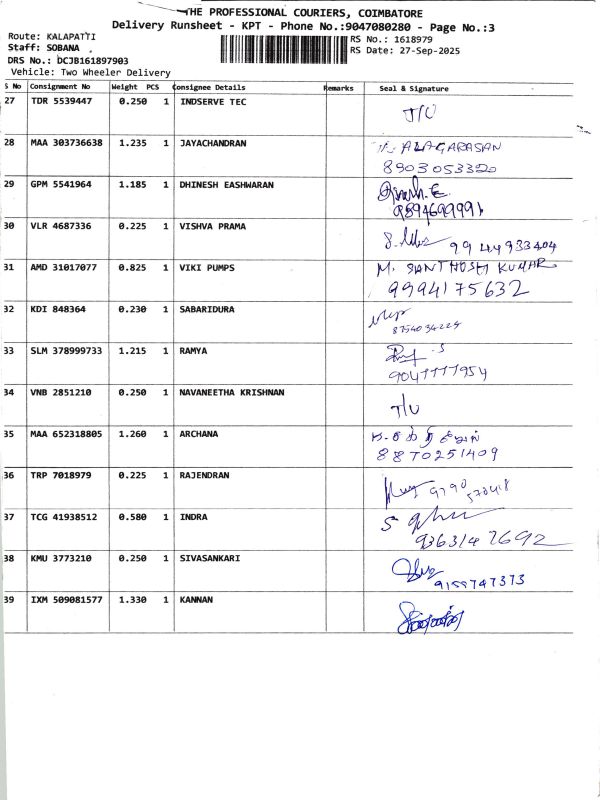 THE PROFESSIONAL COURIERS, COIMBATORE
Delivery Runsheet - KPT - Phone No.:9047080280 - Page No.:3
Route: KALAPATTI
RS No.: 1618979
Staff: SOBANA
RS Date: 27-Sep-2025
DRS No.: DCJB161897903
Vehicle: Two Wheeler Delivery
S No Consignment No Weight PCS Consignee Details Remarks Seal & Signature
27 TDR 5539447 0.250 1 INDSERVE TEC T/U
28 MAA 303736638 1.235 1 JAYACHANDRAN ALAGARASAN
8903053320
29 GPM 5541964 1.185 1 DHINESH EASHWARAN Dinesh.E
9894699991
30 VLR 4687336 0.225 1 VISHVA PRAMA 9944933404
31 AMD 31017077 0.825 1 VIKI PUMPS M. SANTHOSH KUMAR
9994175632
32 KDI 848364 0.230 1 SABARIDURA
8754034224
33 SLM 378999733 1.215 1 RAMYA
9047777954
34 VNB 2851210 0.250 1 NAVANEETHA KRISHNAN T/U
35 MAA 652318805 1.260 1 ARCHANA
8870251409
36 TRP 7018979 0.225 1 RAJENDRAN 9790
37 TCG 41938512 0.580 1 INDRA
9363147692
38 KMU 3773210 0.250 1 SIVASANKARI
9155747373
39 IXM 509081577 1.330 1 KANNAN